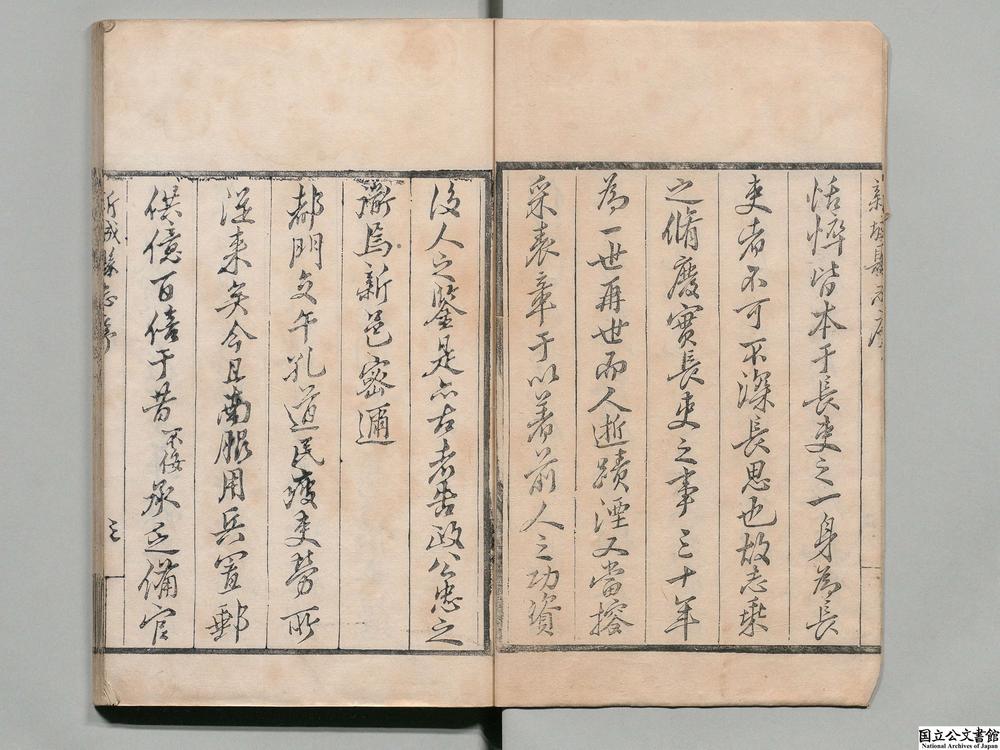 新城縣志序
恬悴皆本于長吏之一身為長
吏者不可不深長思也故志乗
之脩廢實長吏之事三十年
為一世再世而人逝蹟湮又當搜
采表章于以著前人之功資
後人之鑒是亦古者告政以忠之
為新邑密邇
都門交午孔道民疲吏勞所
從来矣今且南服用兵置郵
供億百倍于昔不佞承乏備官
新城縣志序
三
国立公文書館
National Archives of Japan